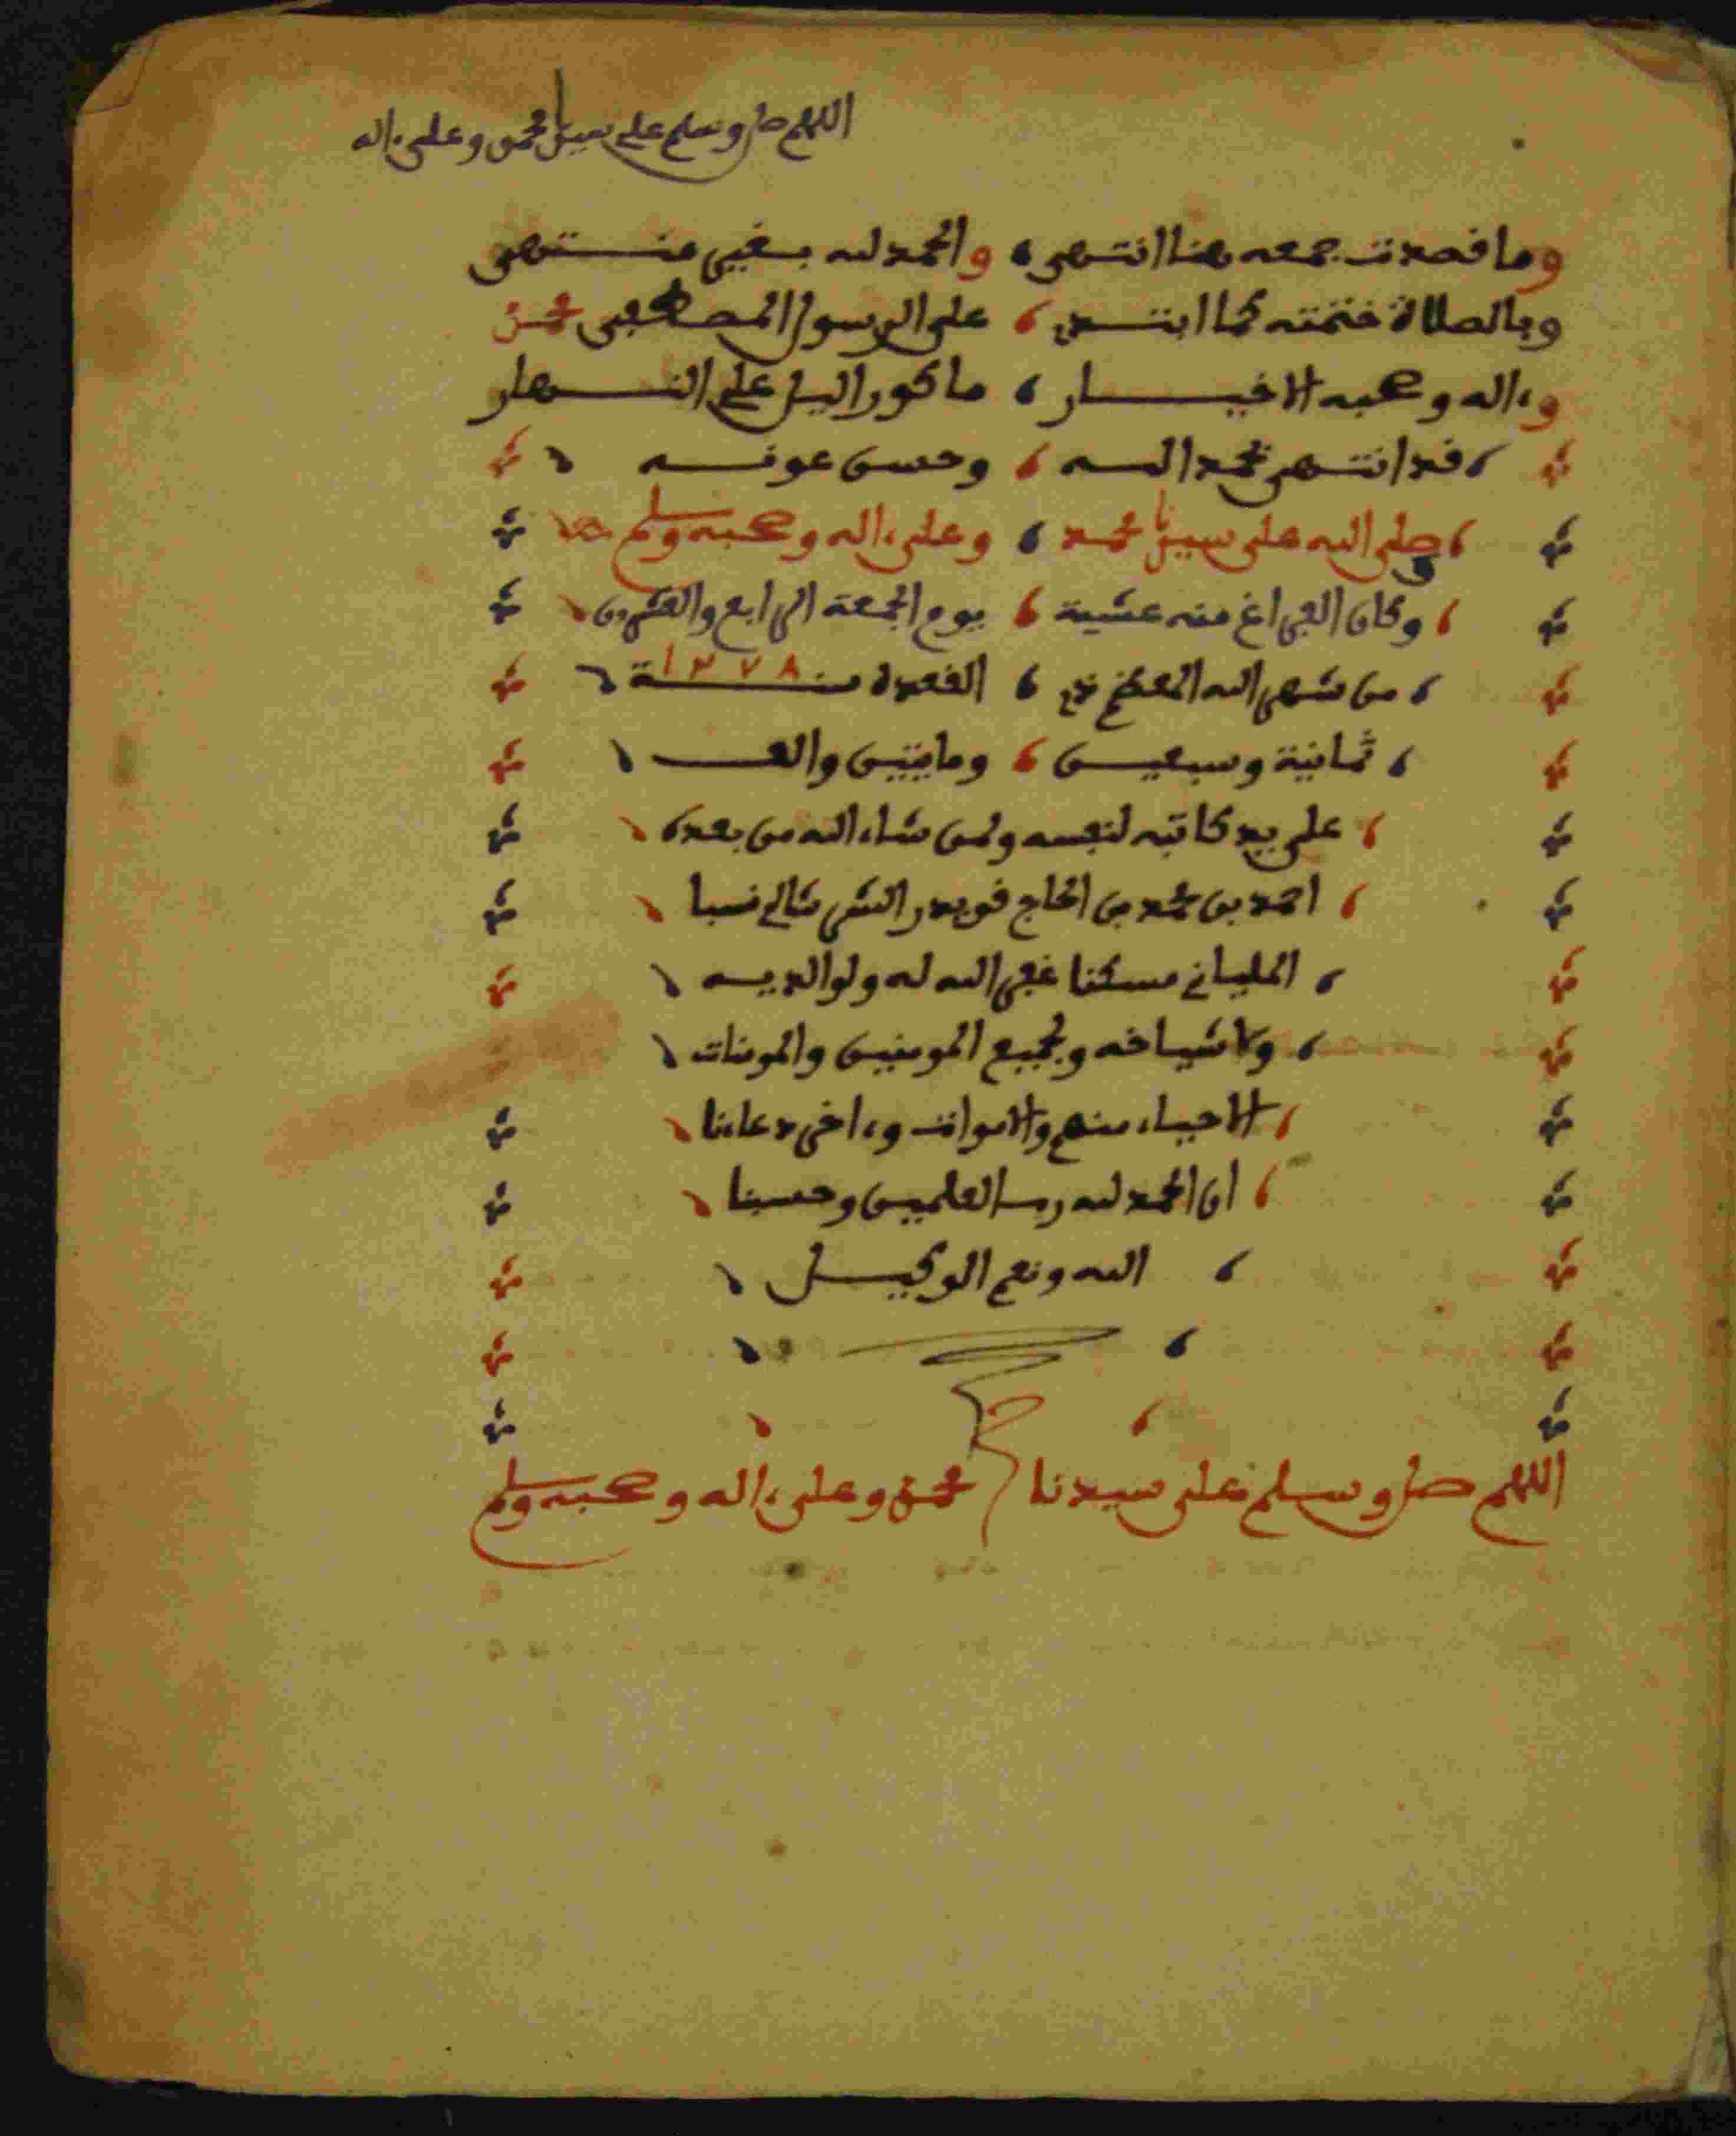 اللهم صل وسلم على سيدنا محمد وعلى ءاله
وما قصدت جمعه هنا انتهى، والحمد لله بغير منتهى
وبالصلاة ختمته كما ابتدي، على الرسول المصطفى محمد
وءاله وصحبه الاخيار، ما كور اليل على النهار
قد انتهى بحمد الله، وحسن عونه
وصلى الله على سيدنا محمد، وعلى ءاله وصحبه وسلم
وكان الفراغ منه عشية، يوم الجمعة الرابع والعشرون
من شهر الله المعظم ذي، القعدة سنة ١٢٧٨
ثمانية وسبعين، ومايتين والف
على يد كاتبه لنفسه ولمن شاء الله من بعده
احمد بن محمد بن الحاج قويدر الشرشالي نسبا
الملياني مسكنا غفر الله له ولوالديه
ولاشياخه ولجميع المومنين والمومنات
الاحياء منهم والاموات وءاخر دعاءنا
ان الحمد لله رب العلمين وحسبنا
الله ونعم الوكيل
اللهم صل وسلم على سيدنا محمد وعلى ءاله وصحبه وسلم